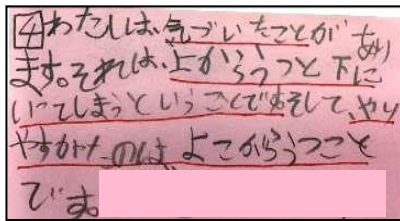 4 わたしは、気づいたことがあり
ます。それは、上からうつと下に
いってしまうということですそして、やり
やすかったのは、よこからうつこと
です。